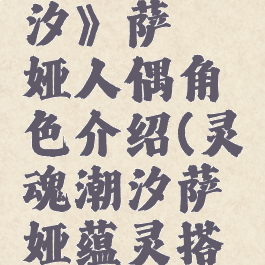 汐》萨
娅人偶角
色介绍(灵
魂潮汐萨
娅蕴灵搭